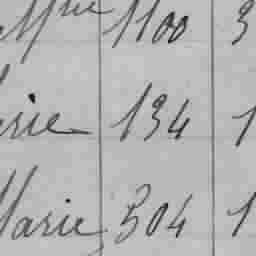 1100 3
erie 134 1
Marie 504 1